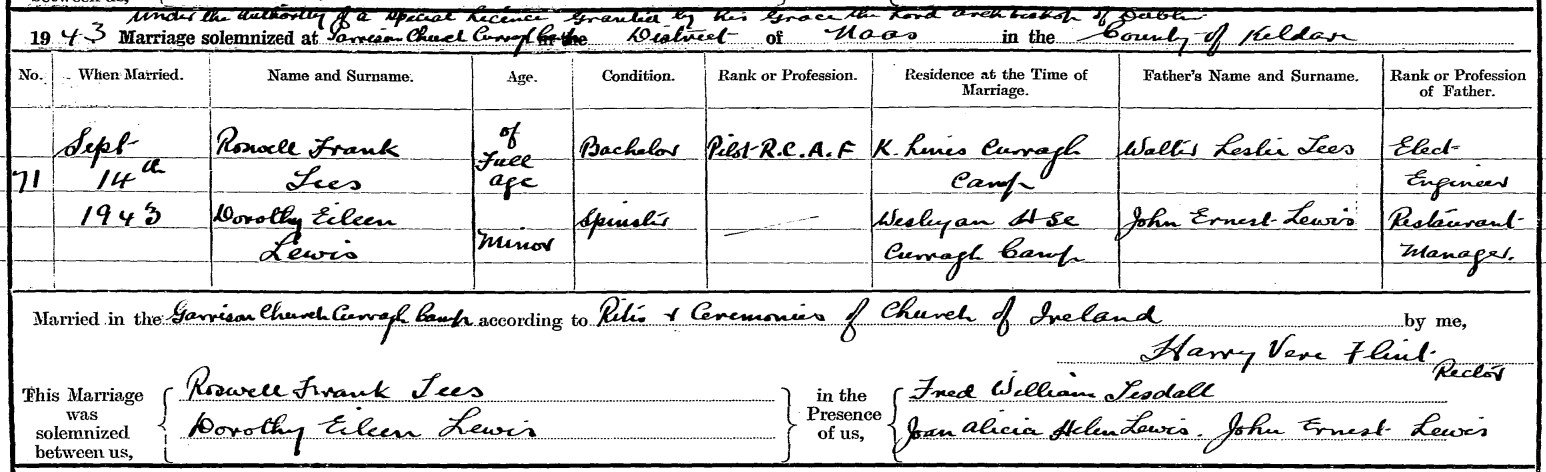 between us,
Under the authority of a Special Licence Granted by his Grace the Lord Archbishop of Dublin
1943 Marriage solemnized at Garrison Church Curragh Camp in the District of Naas in the County of Kildare
No. When Married. Name and Surname. Age. Condition. Rank or Profession. Residence at the Time of Marriage. Father's Name and Surname. Rank or Profession of Father.
71 Sept 14th 1943
Roswell Frank Tees of Full age Bachelor Pilot R.C.A.F K. Lines Curragh Camp Walter Leslie Tees Elect Engineer
Dorothy Eileen Lewis Minor Spinster — Wesleyan Hse Curragh Camp John Ernest Lewis Restaurant Manager.
Married in the Garrison Church Curragh Camp according to Rites & Ceremonies of Church of Ireland by me,
Harry Vere Flint
Rector
This Marriage was solemnized between us,
Roswell Frank Tees
Dorothy Eileen Lewis
in the Presence of us,
Fred William Tisdall
Joan Alicia Helen Lewis. John Ernest Lewis